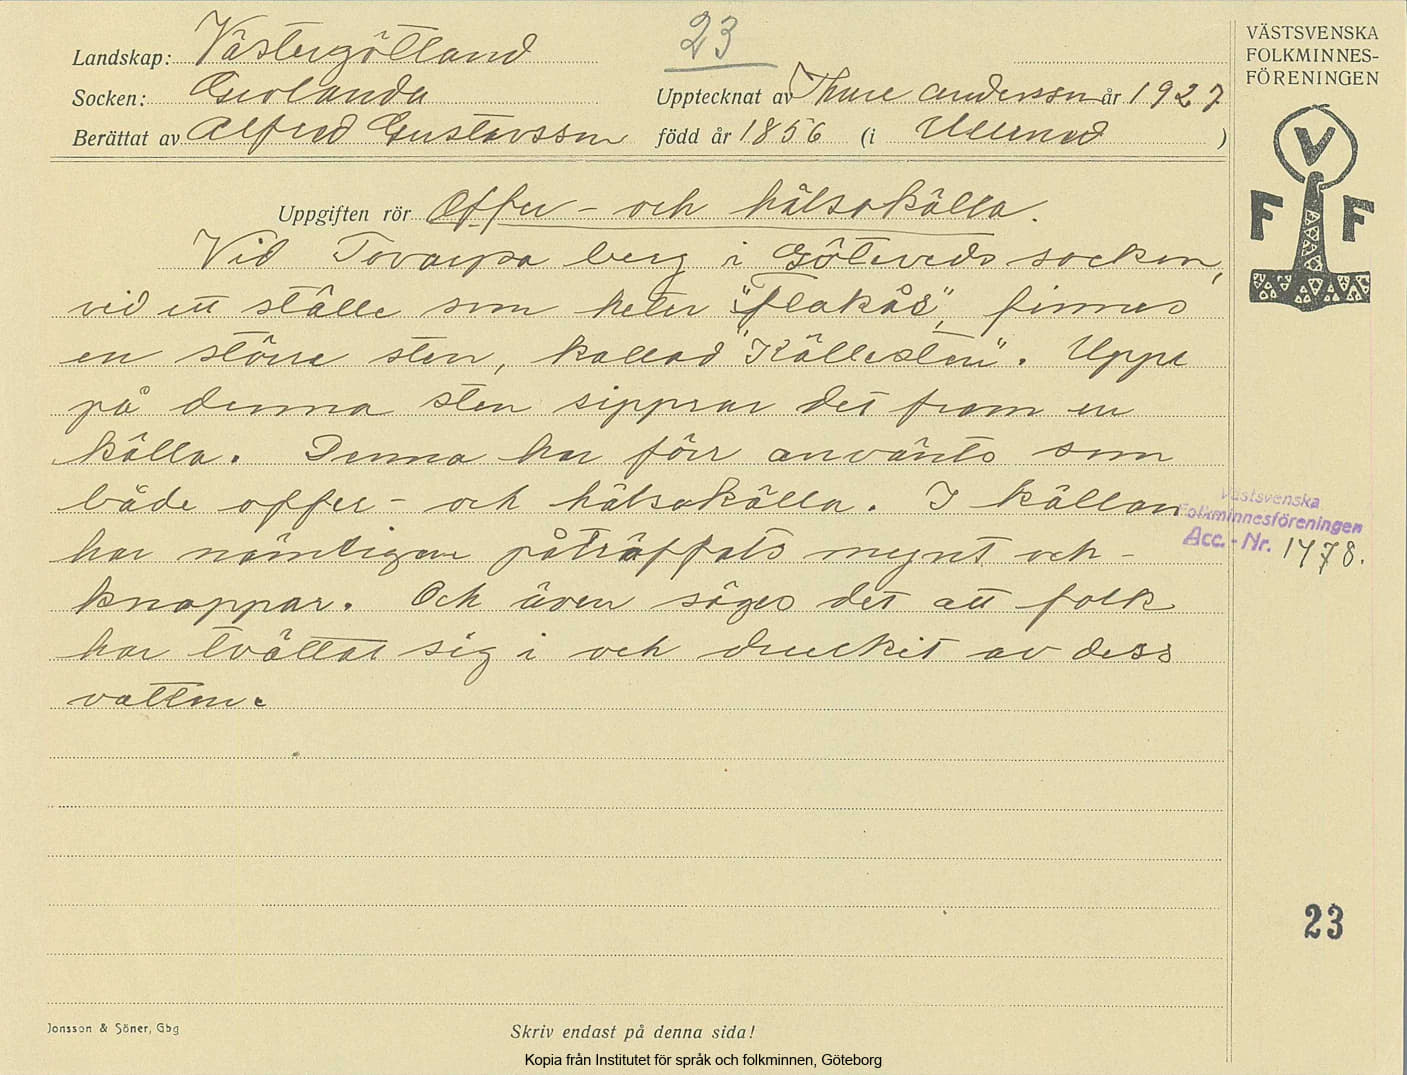 23
Landskap: Västergötland
Socken: Gerlanda
Upptecknat av Thure Andersson år 1927
Berättat av Alfred Gustavsson född år 1856 (i Ullened )
Uppgiften rör Offer- och hälsokälla.
Vid Tovarpa berg i Göteveds socken,
vid ett ställe som heter "Flakås", finnes
en större sten, kallad "Källesten". Uppe
på denna sten sipprar det fram en
källa. Denna har förr använts som
både offer- och hälsokälla. I källan
har nämligen påträffats mynt och
knappar. Och även säges det att folk
har tvättat sig i och druckit av dess
vatten.
VÄSTSVENSKA
FOLKMINNES-
FÖRENINGEN
V
F F
Västsvenska
Folkminnesföreningen
Acc.-Nr. 1478.
23
Jonsson & Söner, Gbg
Skriv endast på denna sida!
Kopia från Institutet för språk och folkminnen, Göteborg